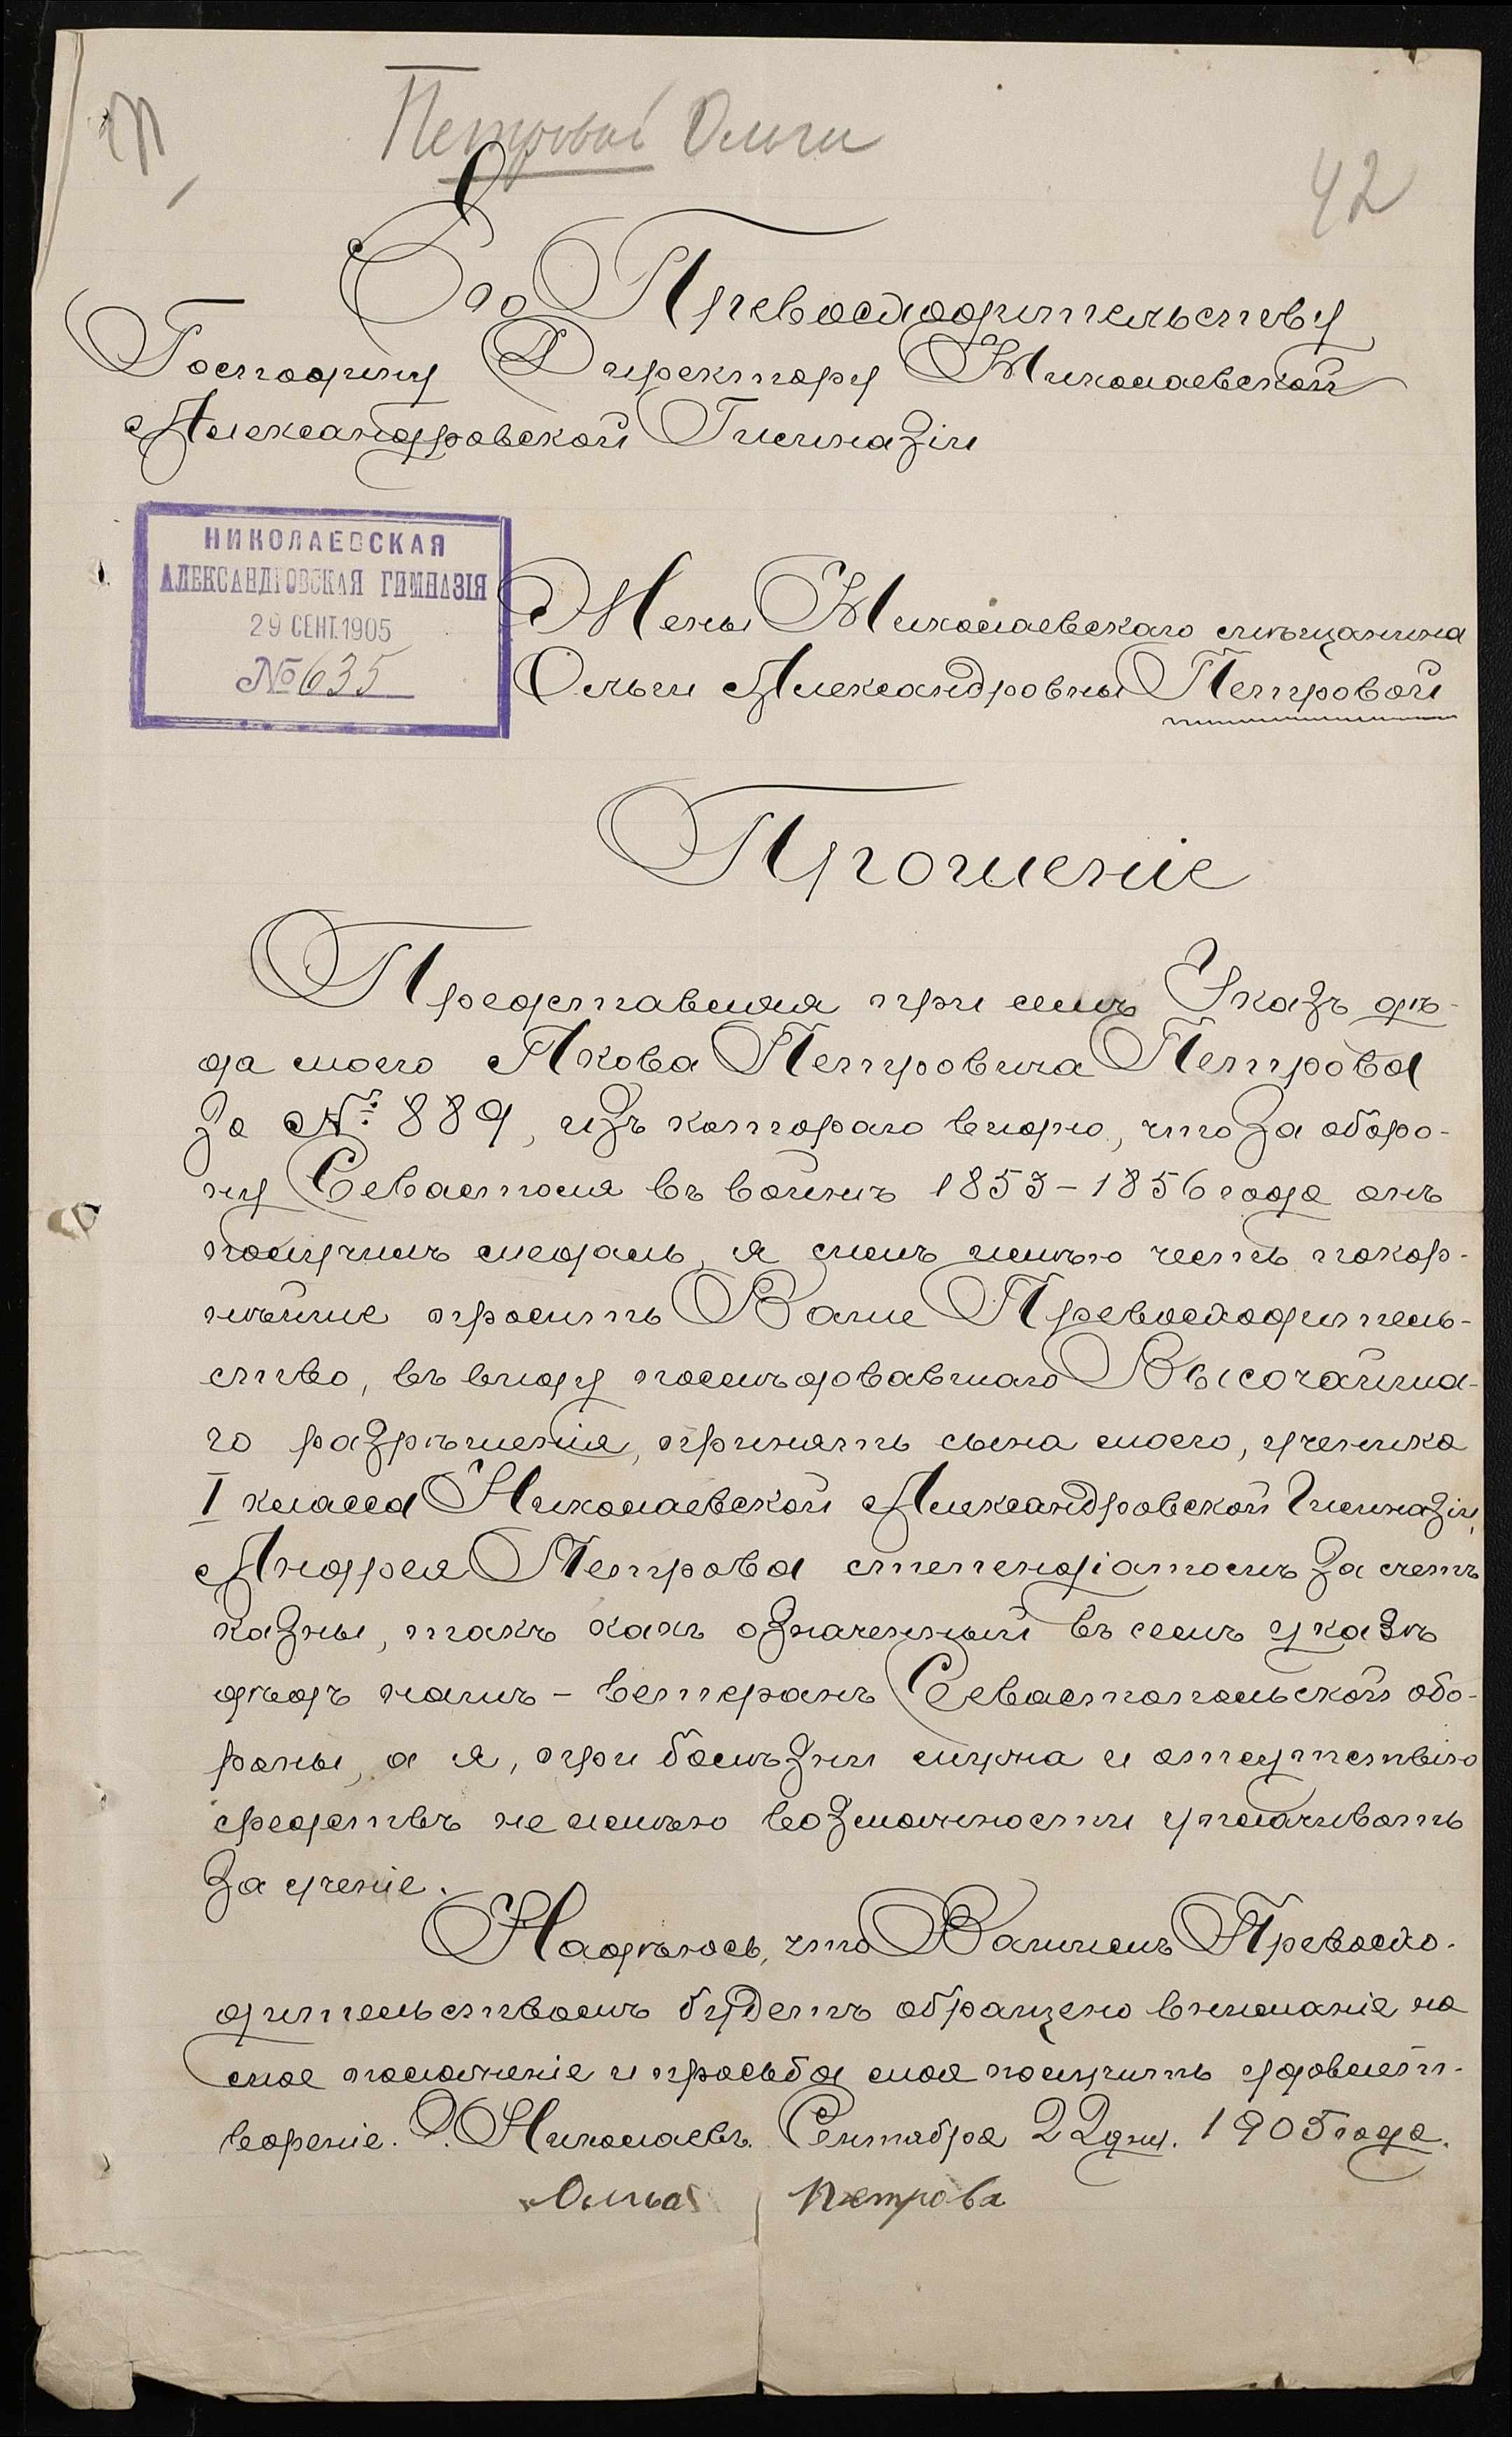 Петровой Ольги
42
Его Превосходительству
Господину Директору Николаевской
Александровской Гимназіи
НИКОЛАЕВСКАЯ
АЛЕКСАНДРОВСКАЯ ГИМНАЗІЯ
29 СЕНТ. 1905
№ 635
Жены Николаевскаго мѣщанина
Ольги Александровны Петровой
Прошеніе
Представляя при семъ Указъ дѣ-
да моего Якова Петровича Петрова
за № 889, изъ котораго видно, что за оборо-
ну Севастополя въ войнѣ 1853-1856 года онъ
получилъ медаль, я симъ имѣю честь покор-
нѣйше просить Ваше Превосходитель-
ство, въ виду послѣдовавшаго Высочайша-
го разрѣшенія, принять сына моего, ученика
I класса Николаевской Александровской Гимназіи,
Андрея Петрова степендіатомъ за счетъ
казны, такъ какъ означенный въ семъ указѣ
дѣдъ нашъ - ветеранъ Севастопольской обо-
роны, а я, при болѣзни мужа и отсутствію
средствъ не имѣю возможности уплачивать
за ученіе.
Надѣюсь, что Вашимъ Превосхо-
дительствомъ будетъ обращено вниманіе на
мое положеніе и просьба моя получитъ удовлет-
вореніе. Г. Николаевъ. Сентября 22 дня. 1905 года.
Ольга Петрова